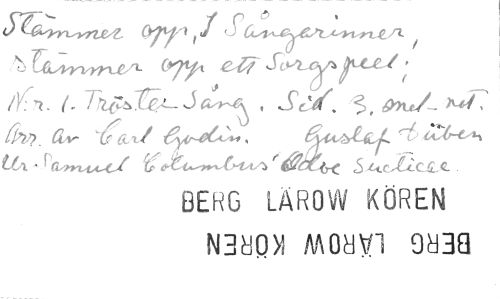 Stämmer opp, I Sångarinner,
stämmer opp ett Sorgspeel;
N:r. 1. Tröste Sång. Sid. 3. med not.
Arr. av Carl Godin. Gustaf Düben
Ur. Samuel Columbus' Odoe Sueticae.
BERG LÄROW KÖREN
BERG LÄROW KÖREN